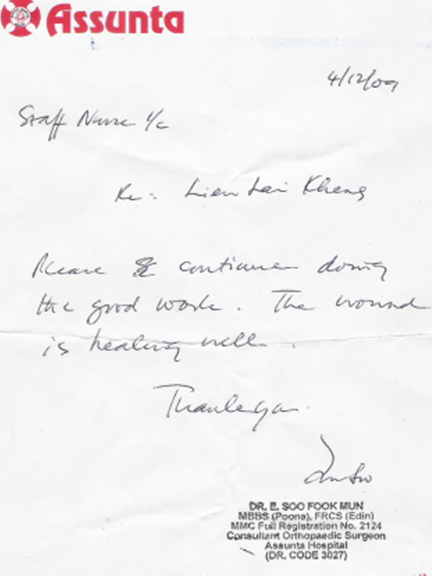 Assunta
4/12/09
Staff Nurse i/c
Re: Lien Lai Kheng
Please continue doing
the good work. The wound
is healing well.
Thank you.
DR. E. SOO FOOK MUN
MBBS (Poona), FRCS (Edin)
MMC Full Registration No. 2124
Consultant Orthopaedic Surgeon
Assunta Hospital
(DR. CODE 3027)